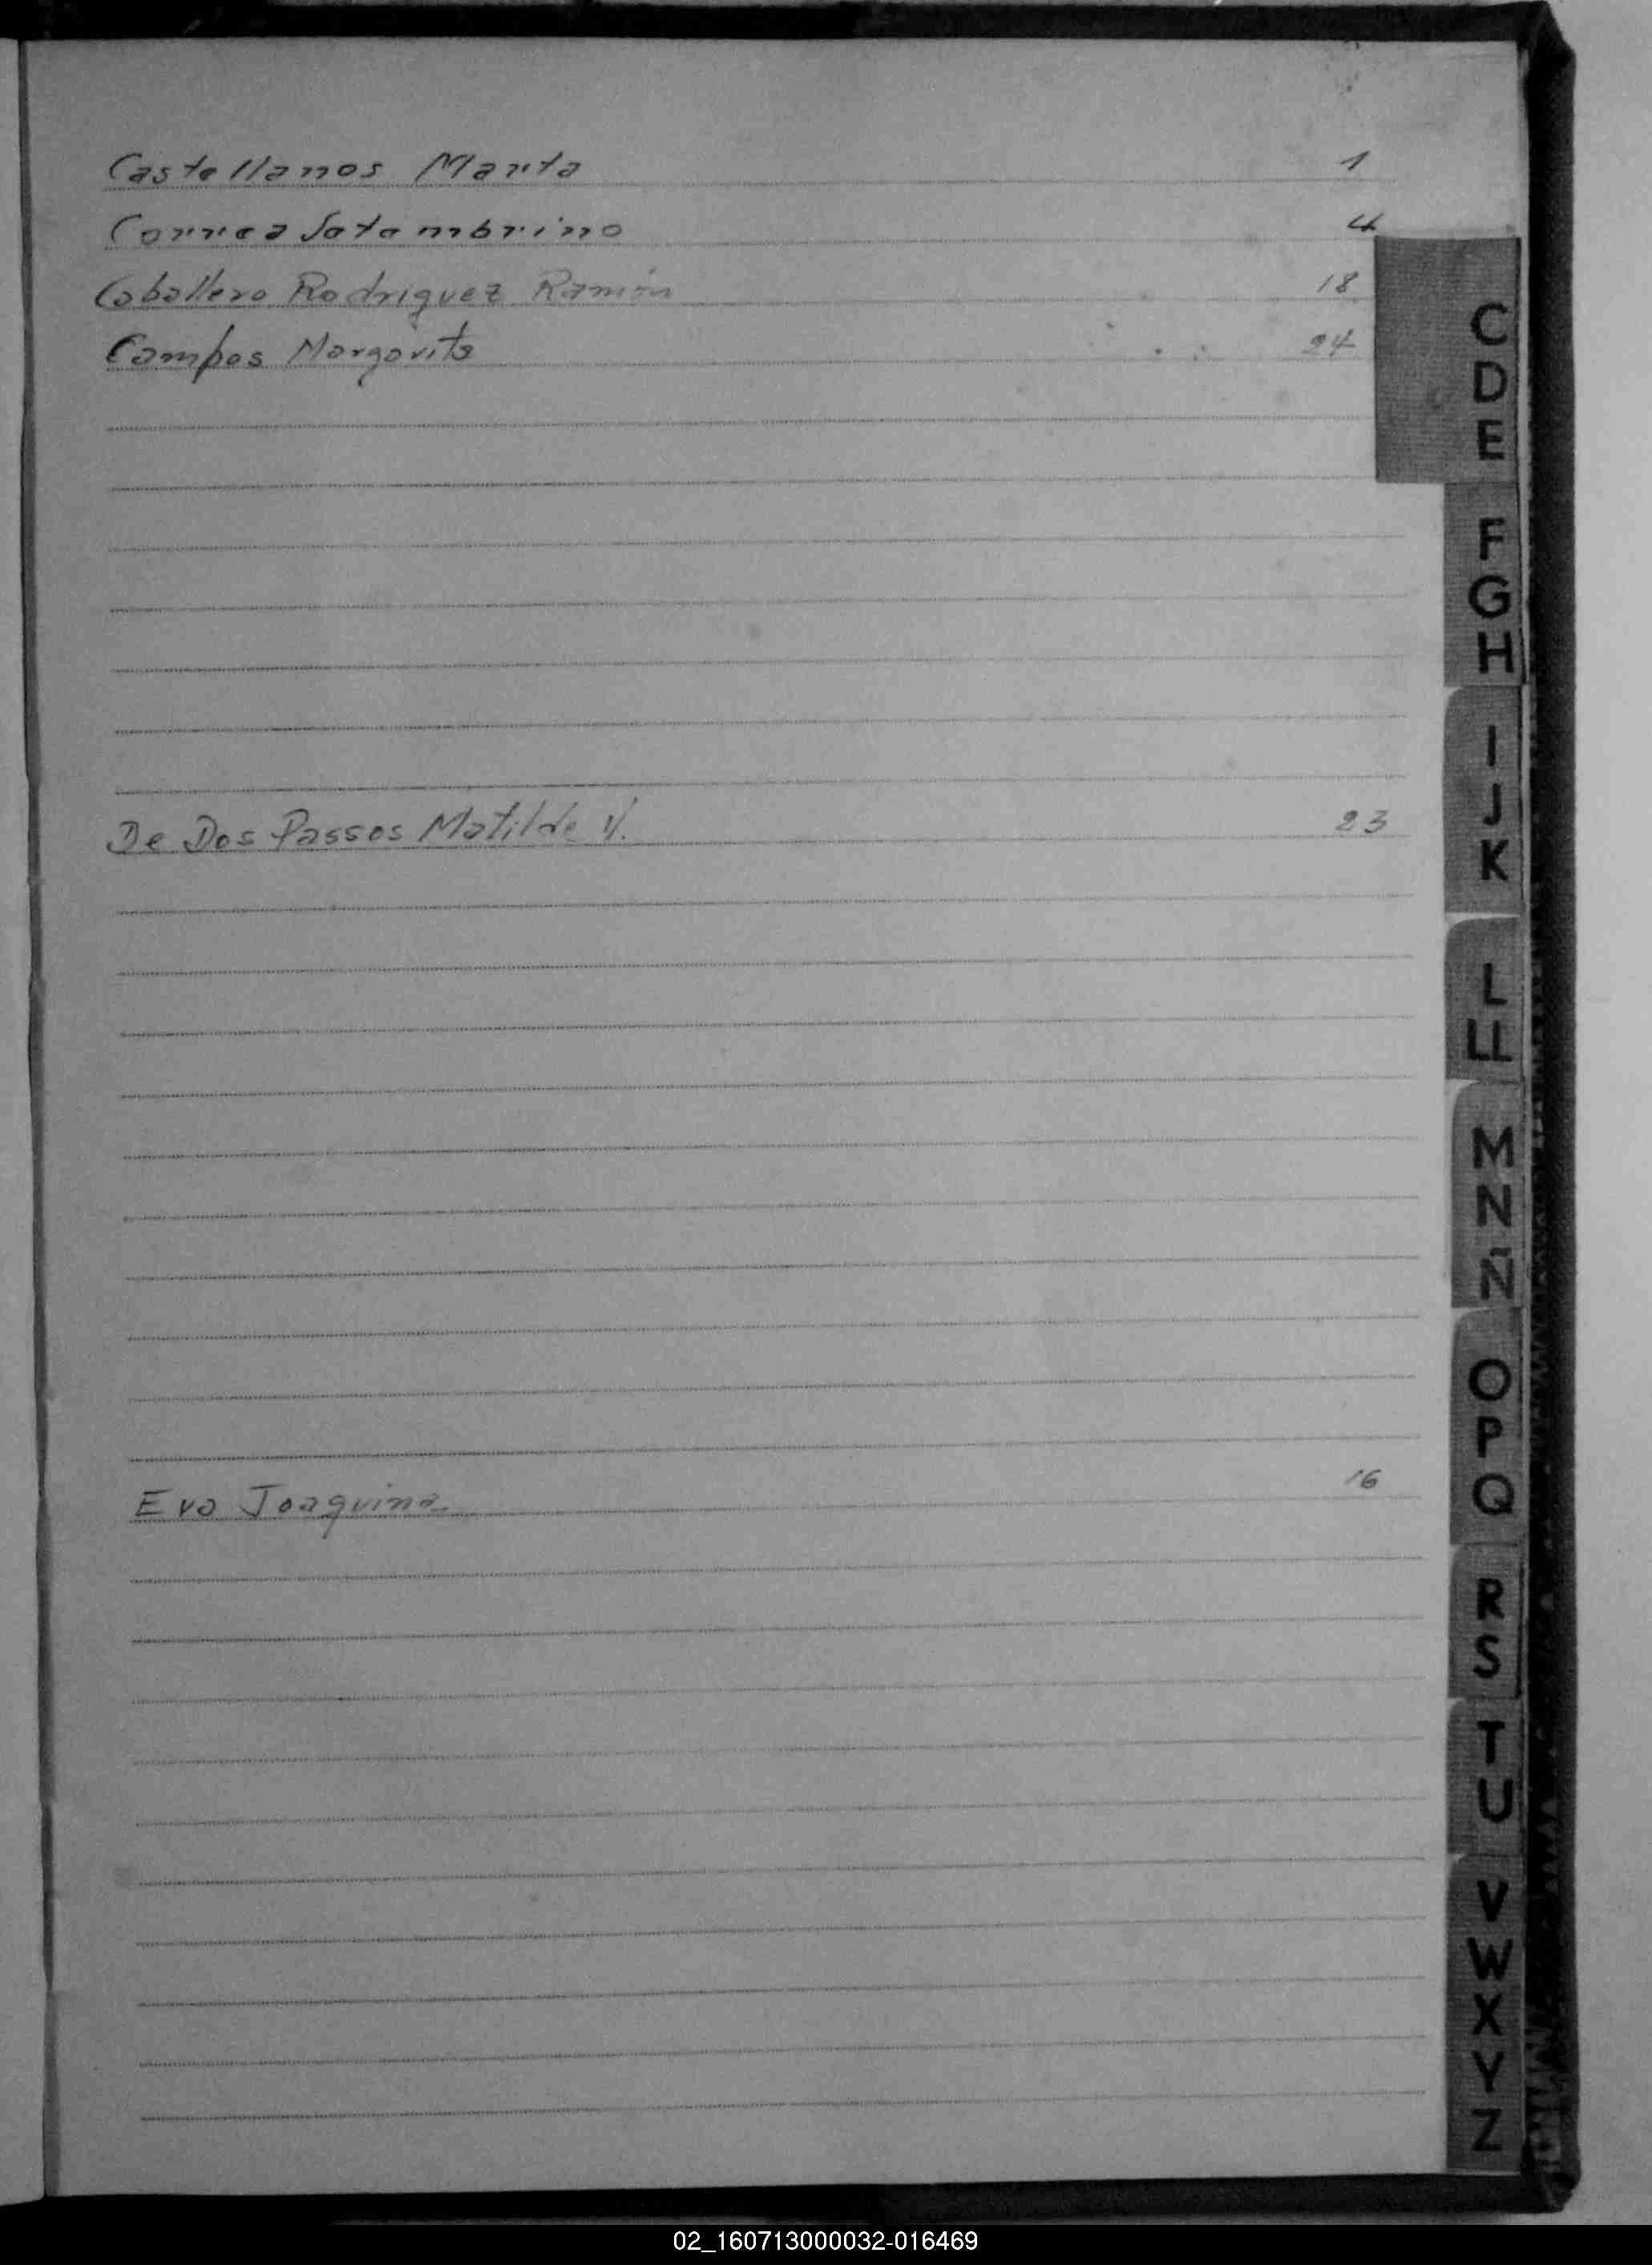 Castellanos Marta 1
Correa Setembrino 4
Caballero Rodriguez Ramón 18
Campos Margarita 24
De Dos Passos Matilde V. 23
Eva Joaquina 16
C
D
E
F
G
H
I
J
K
L
LL
M
N
Ñ
O
P
Q
R
S
T
U
V
W
X
Y
Z
02_160713000032-016469